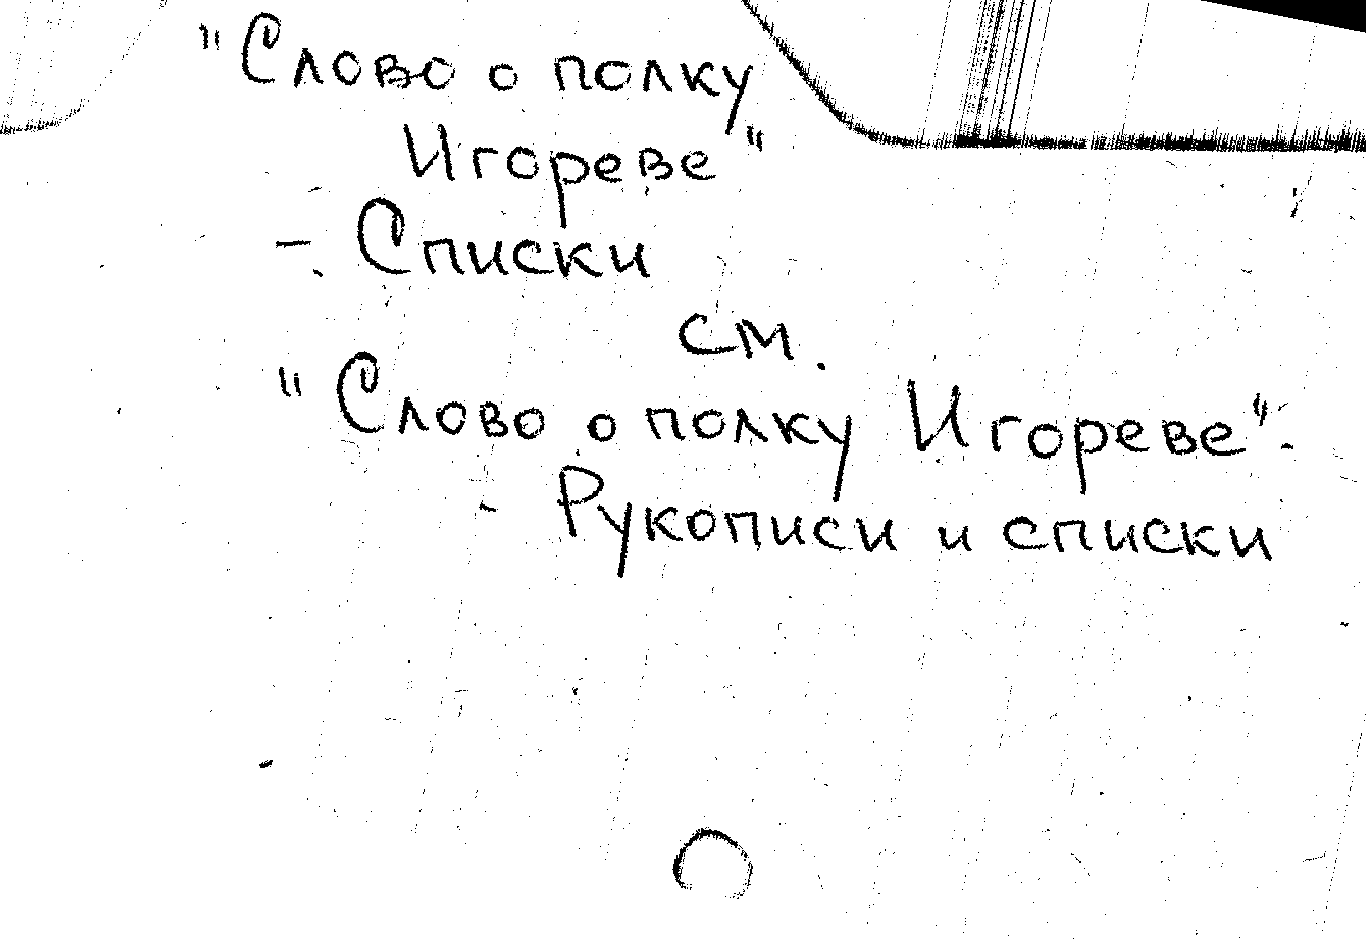 "Слово о полку
Игореве"
- Списки
см.
"Слово о полку Игореве".
- Рукописи и списки